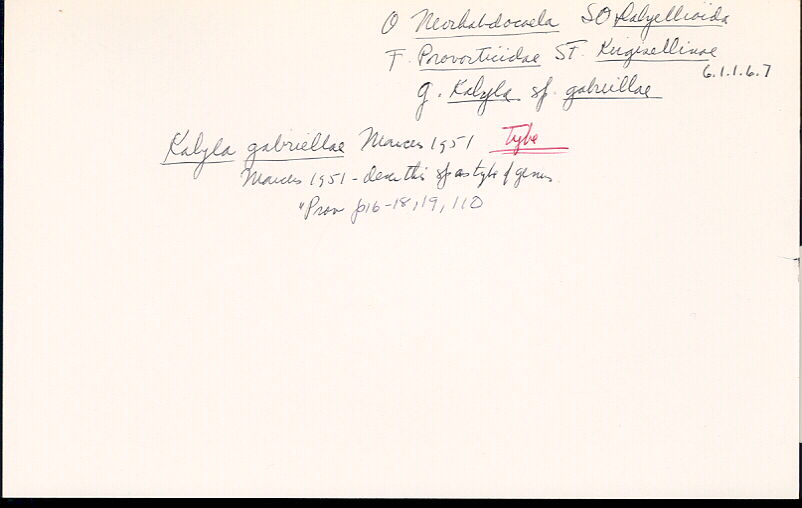 O Neorhabdocoela SO Dalyellioida
F. Provorticidae SF. Kirgisellinae
6.1.1.6.7
g. Kalyla sp. gabriellae
Kalyla gabriellae Marcus 1951 Type
Marcus 1951 - describes this sp as type of genus
"Prov p16-18, 19, 110